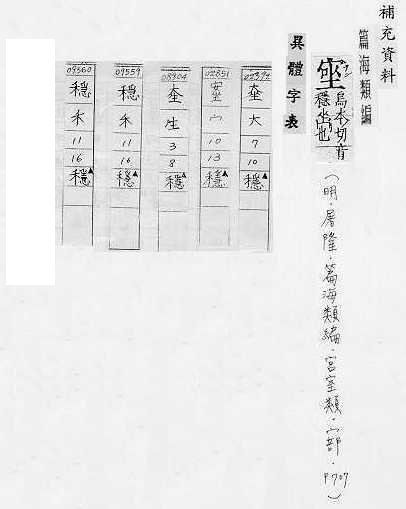 補充資料
篇海類編
烏本切音
穩坐也
(明.屠隆.篇海類編.宮室類.宀部.P707)
異體字表
大 7 10 穩▲
02851 宀 10 13 穩▲
生 3 8 穩▲
09559 穩 禾 11 16 穩▲
09560 穩 禾 11 16 穩▲